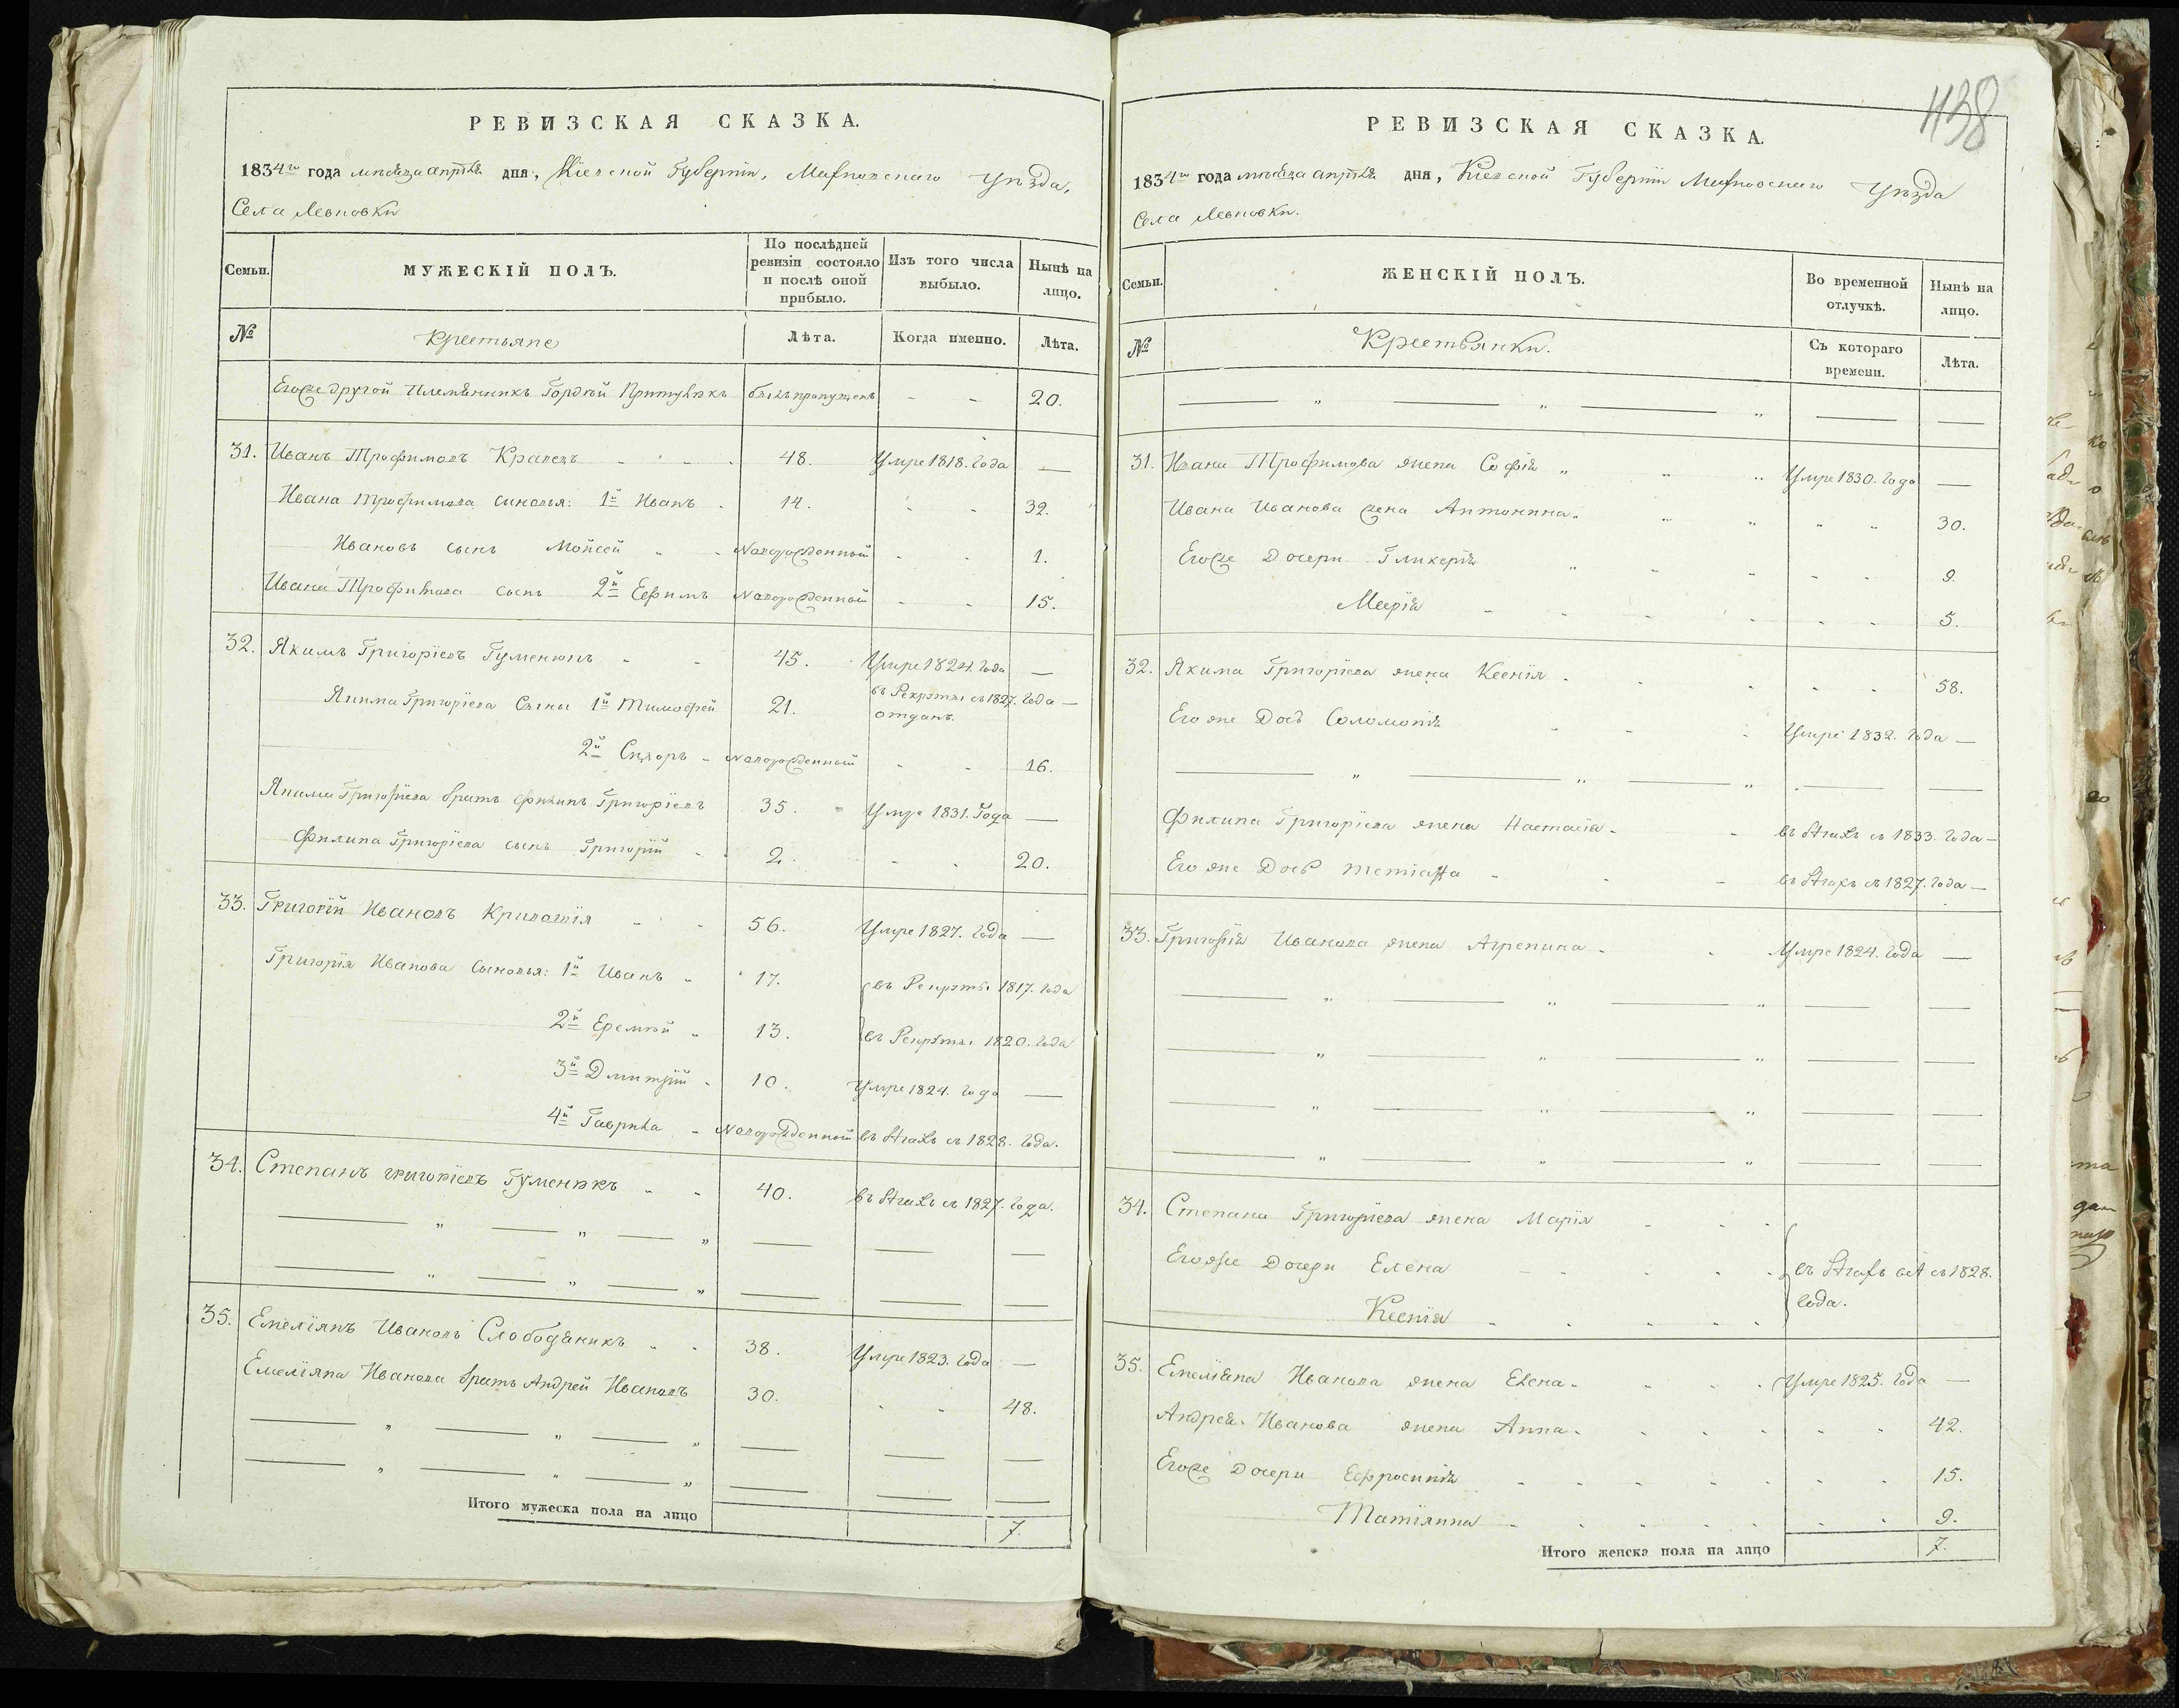 РЕВИЗСКАЯ СКАЗКА.
1834го года месяца апреля дня, Кіевской Губерніи, Махновскаго Уѣзда,
Села Левковки
Семьи.
МУЖЕСКІЙ ПОЛЪ.
По послѣдней ревизіи состояло и послѣ оной прибыло.
Изъ того числа выбыло.
Нынѣ на лицо.
№ Крестьяне Лѣта. Когда именно. Лѣта.
Егоже другой Племянникъ Гордѣй Притулякъ былъ пропущенъ - - 20.
31. Иванъ Трофимовъ Кравецъ 48. Умре 1818. года —
Ивана Трофимова сыновья: 1й Иванъ 14. - - 32.
Ивановъ сынъ Мойсей Новорожденный - - 1.
Ивана Трофимова сынъ 2й Ефимъ Новорожденный - - 15.
32. Якимъ Григоріевъ Гуменюкъ 45. Умре 1824. года —
Якима Григоріева Сыны 1й Тимофей 21. въ Рекруты съ 1827. года —
отданъ.
2й Сидоръ Новорожденный - - 16.
Якима Григоріева братъ Филипъ Григоріевъ 35. Умре 1831. Года —
Филипа Григоріева сынъ Григорій 2. - - 20.
33. Григорій Ивановъ 56. Умре 1827. года —
Григорія Иванова Сыновья: 1й Иванъ 17. въ Рекруты 1817. года
2й Еремѣй 13. въ Рекруты 1820. года
3й Дмитрій 10. Умре 1824. года —
4й Гаврила Новорожденный въ бѣгахъ съ 1828. года.
34. Степанъ Григоріевъ Гуменюкъ 40. въ бѣгахъ съ 1827. года.
35. Емеліянъ Ивановъ Слободяникъ 38. Умре 1823. года —
Емеліяна Иванова братъ Андрей Ивановъ 30. - - 48.
Итого мужеска пола на лицо 7.
1138
РЕВИЗСКАЯ СКАЗКА.
1834го года месяца апреля дня, Кіевской Губерніи Махновскаго Уѣзда
Села Левковки.
Семьи.
ЖЕНСКІЙ ПОЛЪ.
Во временной отлучкѣ.
Нынѣ на лицо.
№ Крестьянки. Съ котораго времени. Лѣта.
31. Ивана Трофимова жена Софія Умре 1830. года —
Ивана Иванова жена Антонина - - 30.
Егоже Дочери Гликерія - - 9.
Марія - - 5.
32. Якима Григоріева жена Ксенія - - 58.
Его же Дочь Соломонія Умре 1832. года —
Филипа Григоріева жена Настасія въ бѣгахъ съ 1833. года —
Его же Дочь въ бѣгахъ съ 1827. года —
33. Григорія Иванова жена Агрепина Умре 1824. года —
34. Степана Григоріева жена Марія
Егоже Дочери Елена въ бѣгахъ съ 1828.
Ксенія года.
35. Емеліяна Иванова жена Елена Умре 1825. года —
Андрея Иванова жена Анна - - 42.
Егоже Дочери Ефросинія - - 15.
Матіянна - - 9.
Итого женска пола на лицо 7.